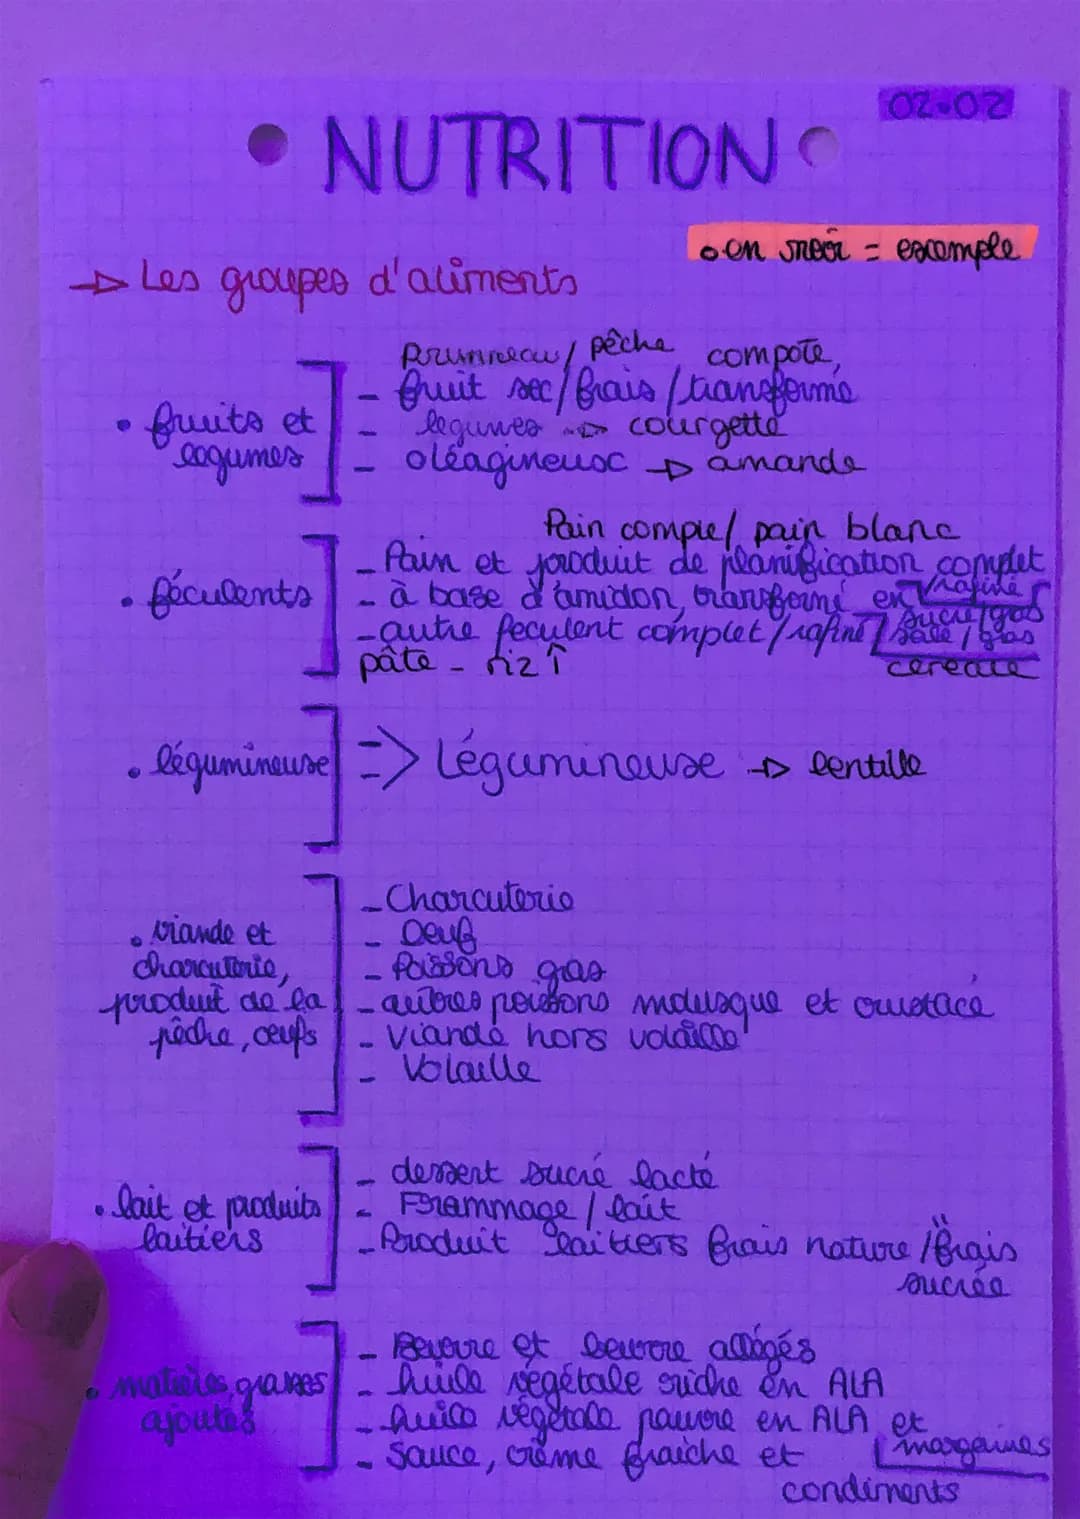 02.02
• NUTRITION •
• en noir = exemple
→ Les groupes d'aliments
prunneau / pêche compote,
• fruits et legumes
- fruit sec / frais / transformé
- legumes → courgette
- oléagineux → amande
Pain complet / pain blanc
• féculents
- Pain et produit de planification complet / rafiné
- à base d'amidon, transformé en sucré / gras salé / gras
- autre feculent complet / rafiné
pâte - riz ↑
céréale
• légumineuse
=> Légumineuse → lentille
• viande et charcuterie, produit de la pêche, œufs
- Charcuterie
- Oeuf
- Poissons gras
- autres poissons mollusque et crustacé
- Viande hors volaille
- Volaille
• lait et produits laitiers
- dessert sucré lacté
- Frammage / lait
- Produit laitiers frais nature / frais
sucrée
• matières grasses ajoutés
- Beurre et beurre allégés
- huile végétale riche en ALA
- huile végétale pauvre en ALA et margarines
- Sauce, crème fraiche et
condiments